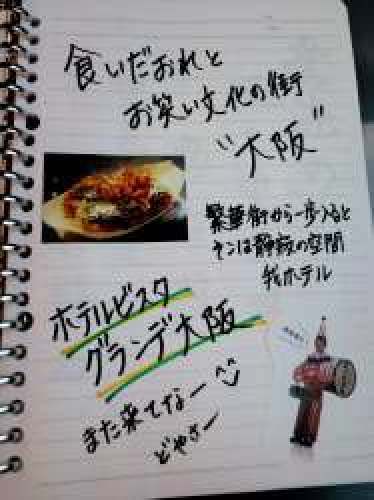 食いだおれと
お笑い文化の街
"大阪"
繁華街から一歩入ると
そこは静寂の空間
我ホテル
ホテルビスタ
グランデ大阪
また来てなー
どやさー